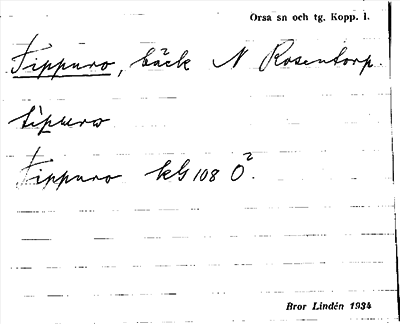 Orsa sn och tg. Kopp. l.
Tippuro, bäck N Rosentorp.
tìpuro
Tippuro kG 108 Ö².
Bror Lindén 1934